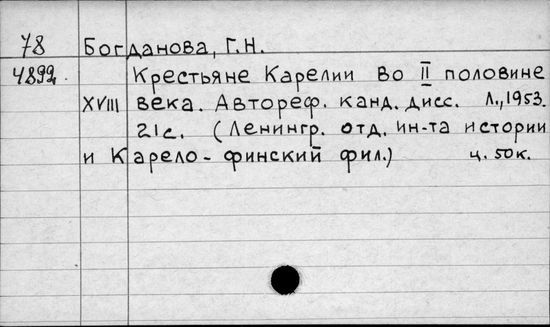 78 Богданова, Г.Н.
4899. Крестьяне Карелии во II половине
XVIII века. Автореф. канд. дисс. Л., 1953.
21с. (Ленингр. отд. ин-та истории
и Карело-финский фил.) ц. 50к.